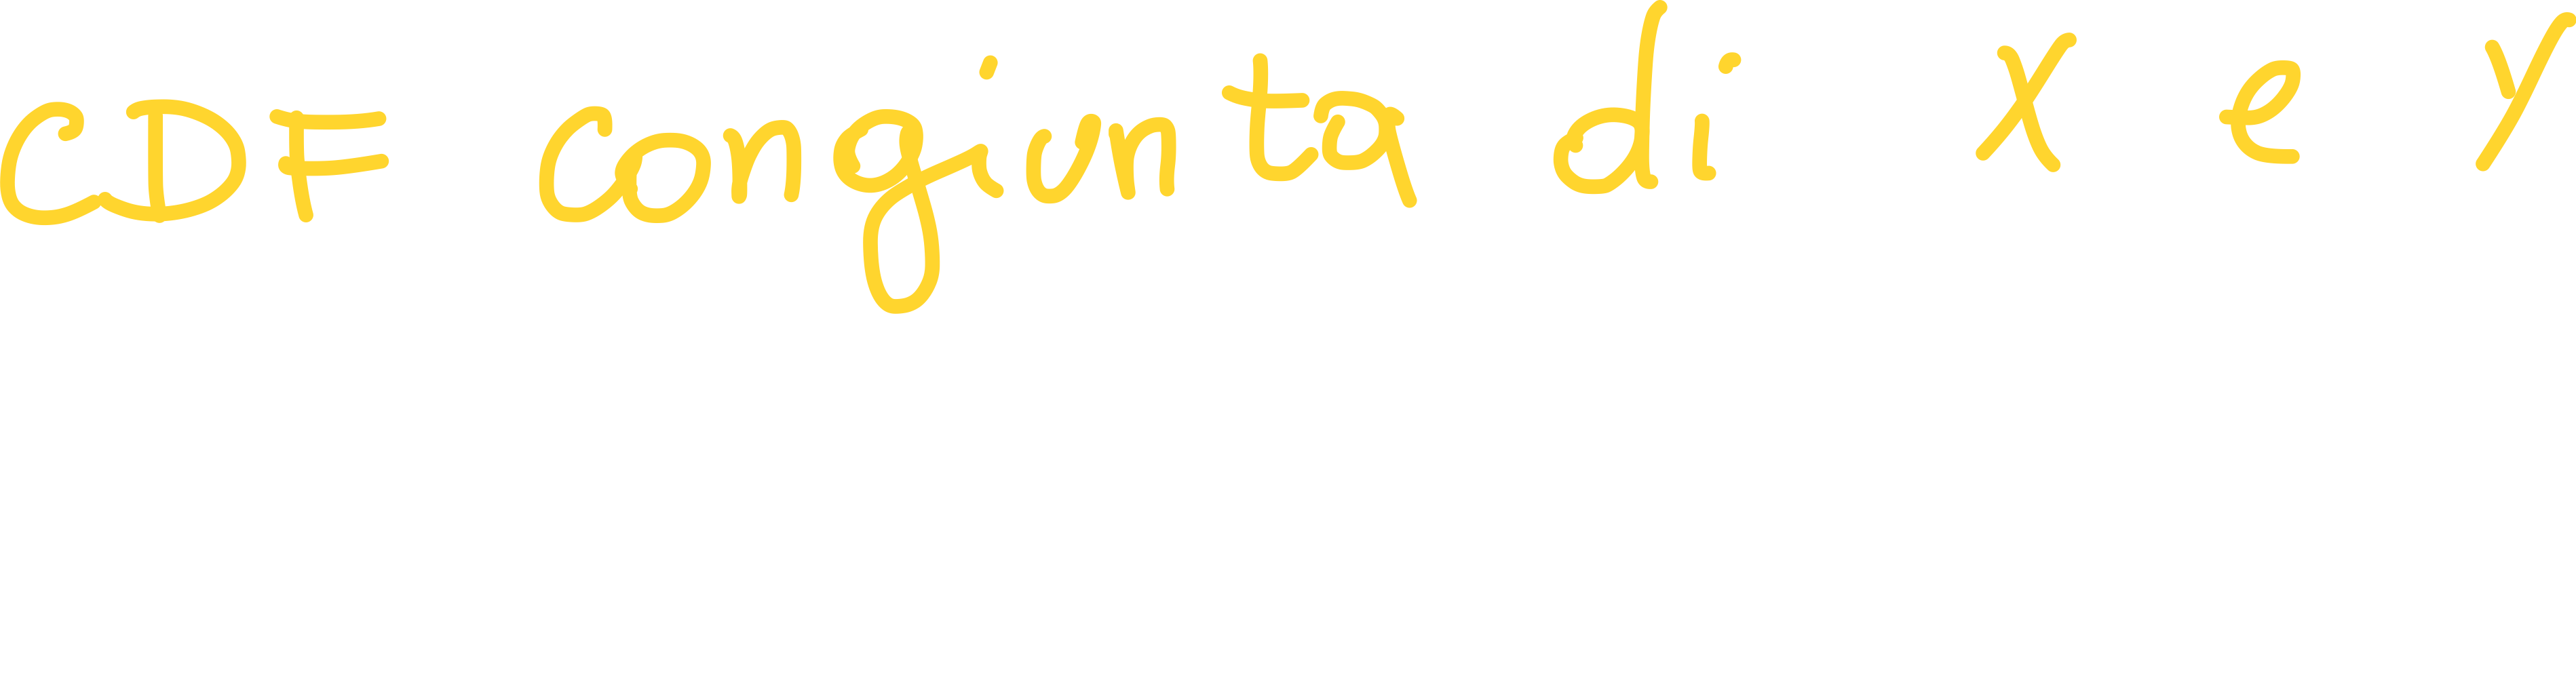 CDF congiunta di X e Y